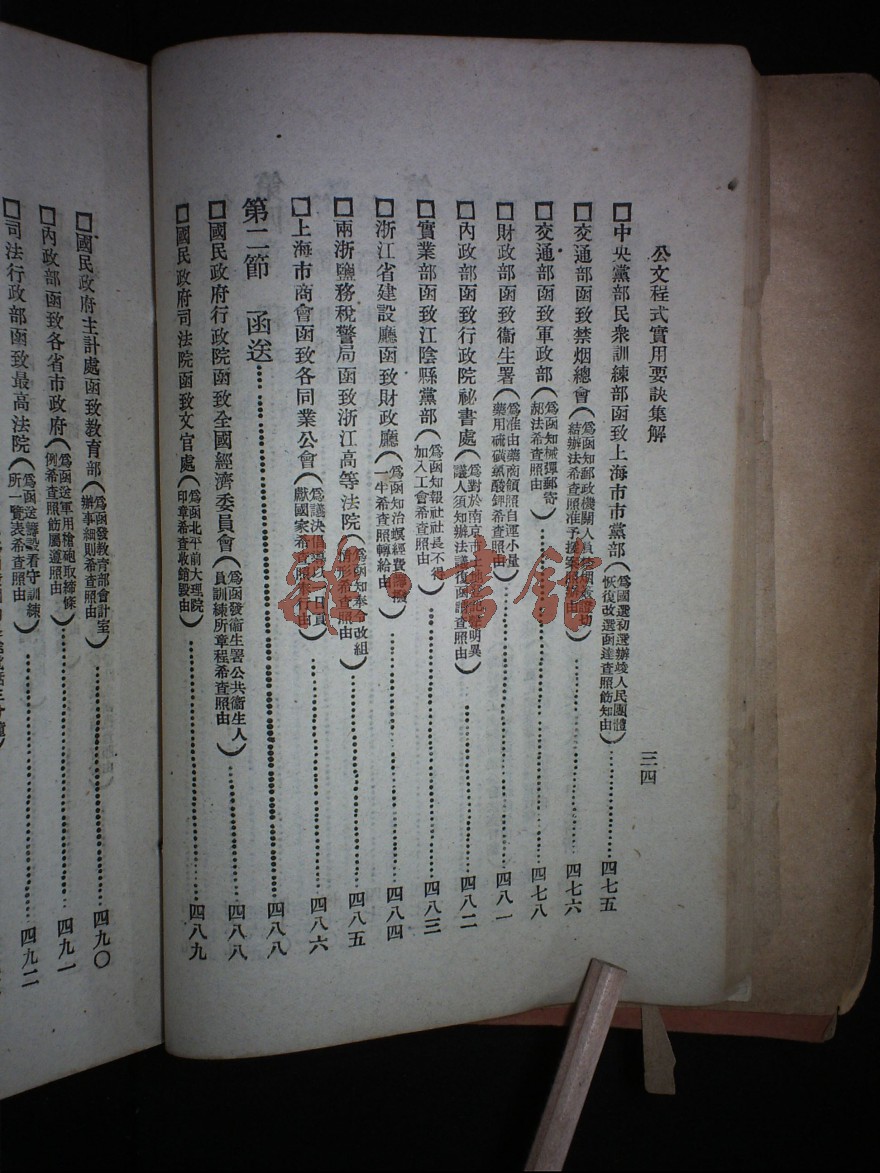 公文程式實用要訣集解
三四
□中央黨部民衆訓練部函致上海市市黨部（爲國選初選辦竣人民團體恢復改選函達查照飭知由）……四七五
□交通部函致禁烟總會（爲函知郵政機關人員結辦法希查照准予援案照辦由）……四七六
□交通部函致軍政部（爲函知械彈郵寄辦法希查照由）……四七八
□財政部函致衞生署（爲准由藥商領照自運小量藥用硫磺氯酸鉀希查照由）……四八一
□內政部函致行政院祕書處（爲對於南京市土地登記聲明異議人須知辦法議復函請查照由）……四八二
□實業部函致江陰縣黨部（爲函知報社社長不得加入工會希查照由）……四八三
□浙江省建設廳函致財政廳（爲函知治螟經費一牛希查照轉給由）……四八四
□兩浙鹽務稅警局函致浙江高等法院（爲函知奉令改組情形希查照由）……四八五
□上海市商會函致各同業公會（爲議決倡以一日獻國家希查照由）……四八六
第二節　函送……四八八
□國民政府行政院函致全國經濟委員會（爲函發衞生署公共衞生人員訓練所章程希查照由）……四八八
□國民政府司法院函致文官處（爲函北平前大理院印章希查收銷毀由）……四八九
□國民政府主計處函致教育部（爲函發教育部會計室辦事細則希查照由）……四九〇
□內政部函致各省市政府（爲函送軍用槍砲取締條例希查照飭屬遵照由）……四九一
□司法行政部函致最高法院（爲函送看守訓練所一覽表希查照由）……四九二
雜·書館